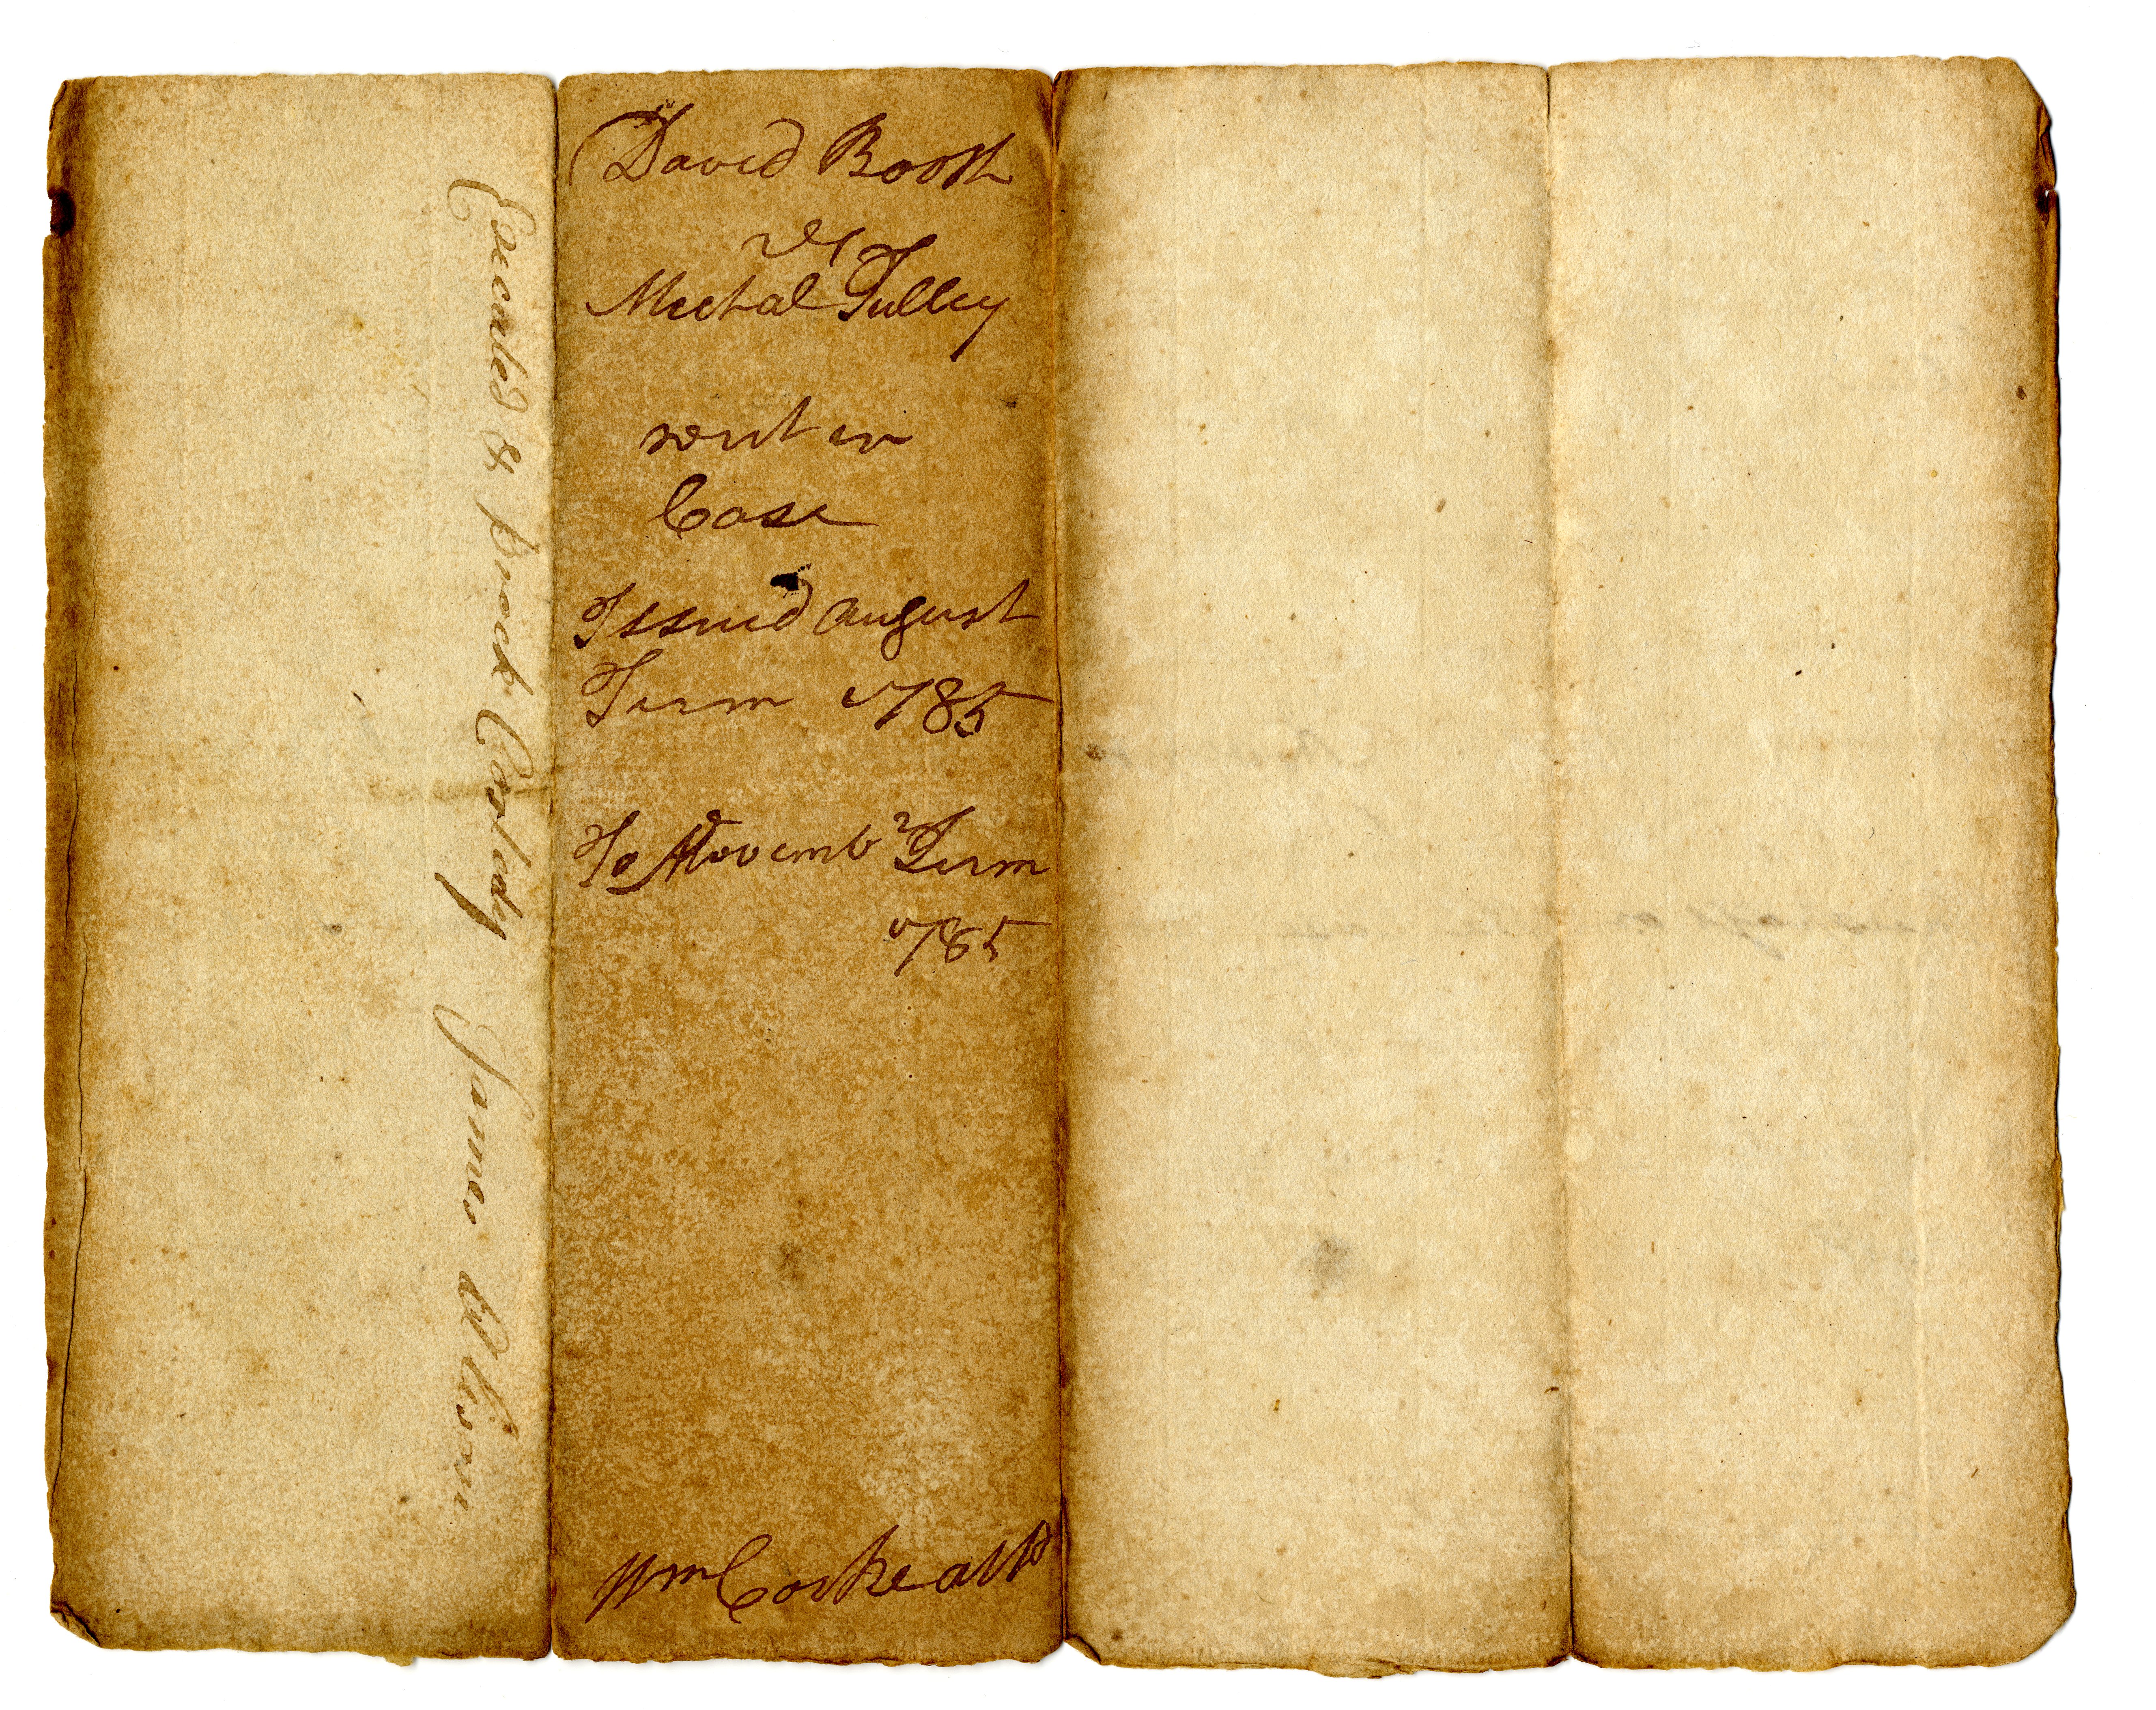 Executed & Broak Costody James Wilson
David Booth
vs
Mechal Tulley
writ in
Case
Issued August
Term 1785
To Novembr Term
1785
Wm Cocke atto